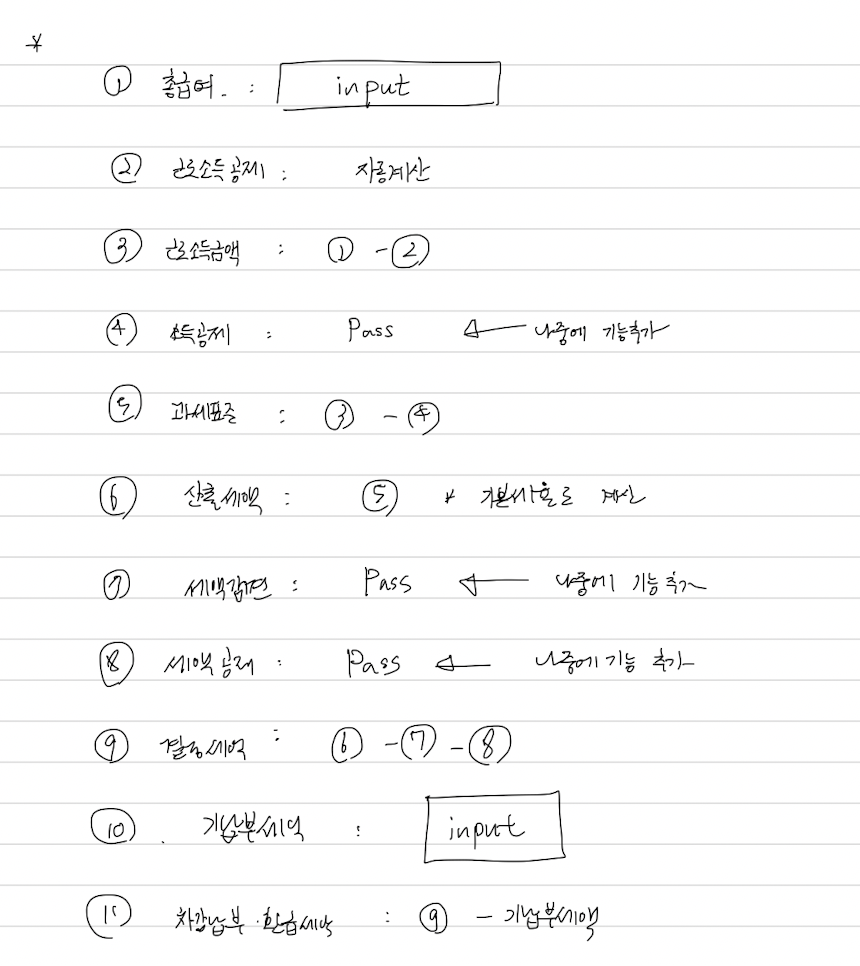 *
① 총급여. : input
② 근로소득공제 : 자동계산
③ 근로소득금액 : ① - ②
④ 소득공제 : Pass ← 나중에 기능추가
⑤ 과세표준 : ③ - ④
⑥ 산출세액 : ⑤ * 기본세율로 계산
⑦ 세액감면 : Pass ← 나중에 기능추가
⑧ 세액공제 : Pass ← 나중에 기능 추가
⑨ 결정세액 : ⑥ - ⑦ - ⑧
⑩ . 기납부세액 : input
⑪ 차감납부·환급세액 : ⑨ - 기납부세액